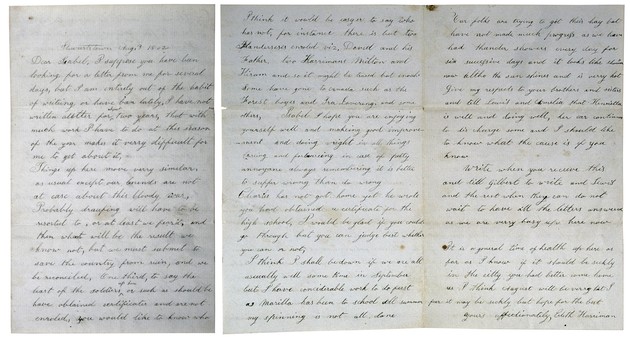 Aug 3 1862
Dear Isabel, I suppose you have been
looking for a letter from me for several
days, but I am entirely out of the habit
of writing as have ban lately, I have not
written aletter for two years, that with
much work I have to do at this season
of the year makes it verry difficult for
me to get about it,
Things up here move verry similar,
as usual except our bounds are not
at care about this bloody war,
Probably draughting will have to be
resorted to, or at least we fear it, and
then what will be the result we
know not, but we must submit to
save the country from ruin, and
be reconciled, One third, to say the
bart of the soldiers or such as should be
have obtained certificates and are not
enroled, you would like to know who
I think it would be easyer to say who
has not, for instance there is but two
enroled viz, David and his
Father, two Harrimans Milton and
Hiram and so it might be traced but
Some have gone to canada such as the
Forest boyes and Ira Lovering and some
others, Isabel I hope you are enjoying
yourself well and makeing good improve-
ment and doing right in all things
annoyance always remembering it is better
to suffer wrong than do wrong
Charles has not got home yet he wrote
you have obtained certificates for the
high school, I would be glad if you could
go through, but you can judge best whether
you can or not,
I think I shall be down if we are all
usually well some time in September
but I have considerable work to do first
as Marilla has been to school all summer
my spinning is not all done
Our folks are trying to get their hay but
have not made much progress as we have
had thunder showers every day for
six successive days and it looks like
now altho the sun shines and is verry hot
Give my respects to your brothers and sisters
and tell Lewis and Amelia that Henrietta
is well and doing well, her ear continues
to discharge some and I should like
to know what the cause is if you
know
Write when you receive this
and tell Gilbert to write and Lewis
and the rest when they can do not
wait to have all the letters answered
as we are verry busy up here now
It is a general time of health up here as
far as I know if it should be sickly
in the citty you had better come home
as I think August will be verry hot &
for it may be sickly but hope for the best
yours affectionately, Edith Harriman